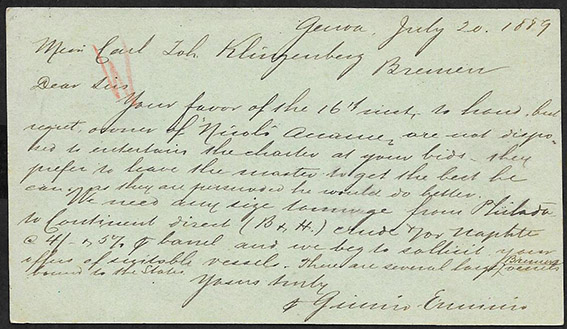 Genoa, July 20. 1889
Carl Joh. Klingenberg
Bremen
Dear Sir,
Your favor of the 16th inst, to hand, but
regret, owner of "Nicolò Accame", are not dispo-
sed to entertain the charter at your bids - they
prefer to leave the master to get the best he
can, as they are persuaded he would do better.
We need any size tonnage from Philada
to Continent direct (B & H.) crude &/or Naphta
@ 4/- & 5% barrel and we beg to solicit your
offers of suitable vessels. There are several large Bremen vessels
bound to the States
Yours truly